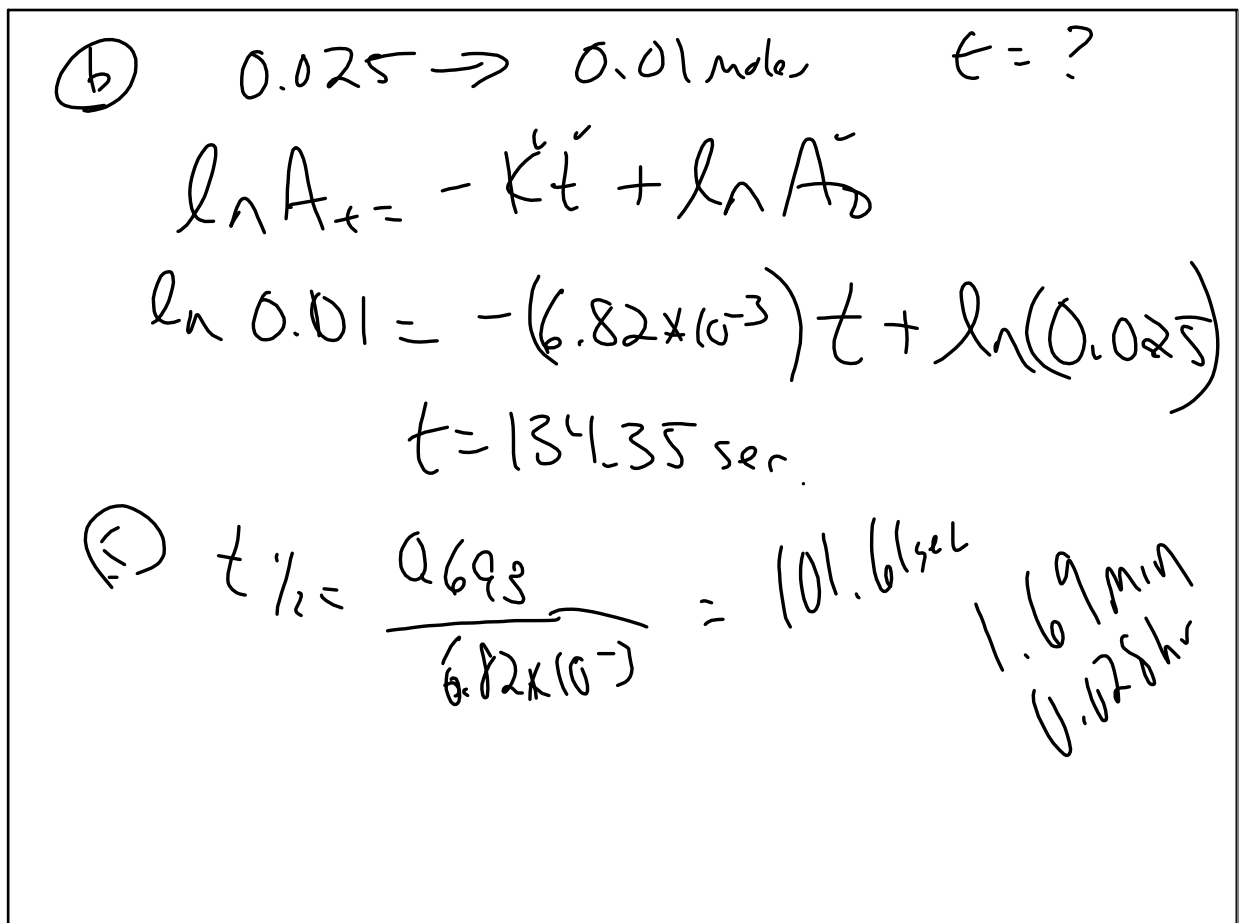 (b) 0.025 → 0.01 moles t = ?
ln A_t = - Kt + ln A_0
ln 0.01 = -(6.82×10^-3) t + ln(0.025)
t = 134.35 sec.
(c) t 1/2 = 0.693 / 6.82×10^-3 = 101.61 sec
1.69 min
0.028 hr